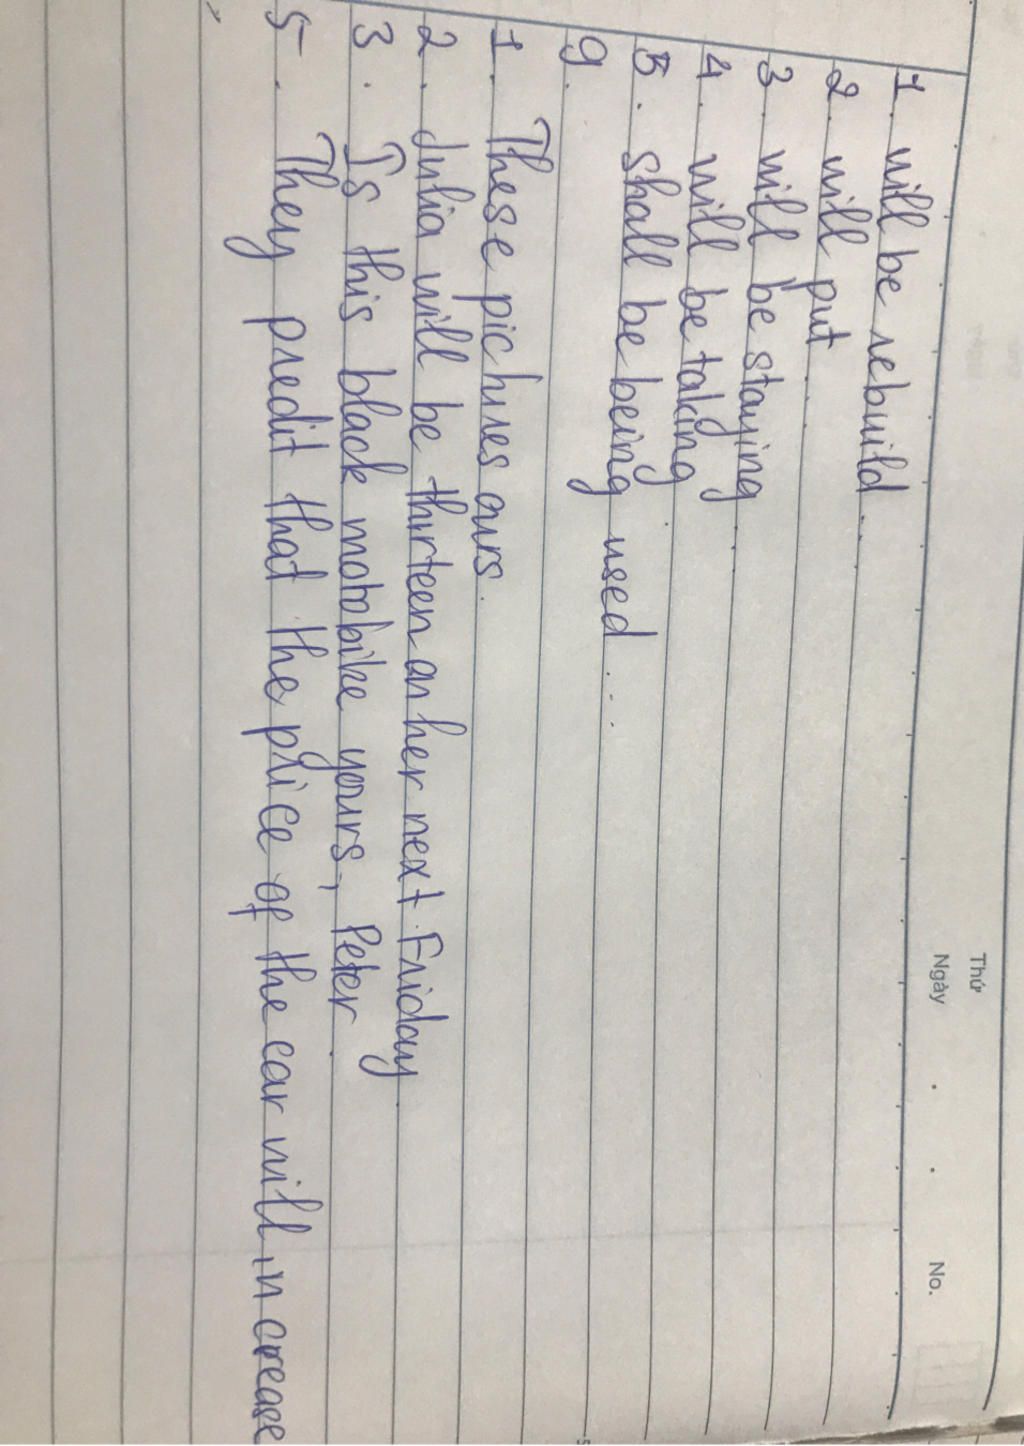 Thứ
Ngày . . No.
1. will be rebuild
2. will put
3. will be staying
4. will be taking
5. shall be being used...
9.
1. These pictures ours.
2. Julia will be thirteen on her next Friday.
3. Is this black motobike yours, Peter
5. They predit that the price of the car will increase